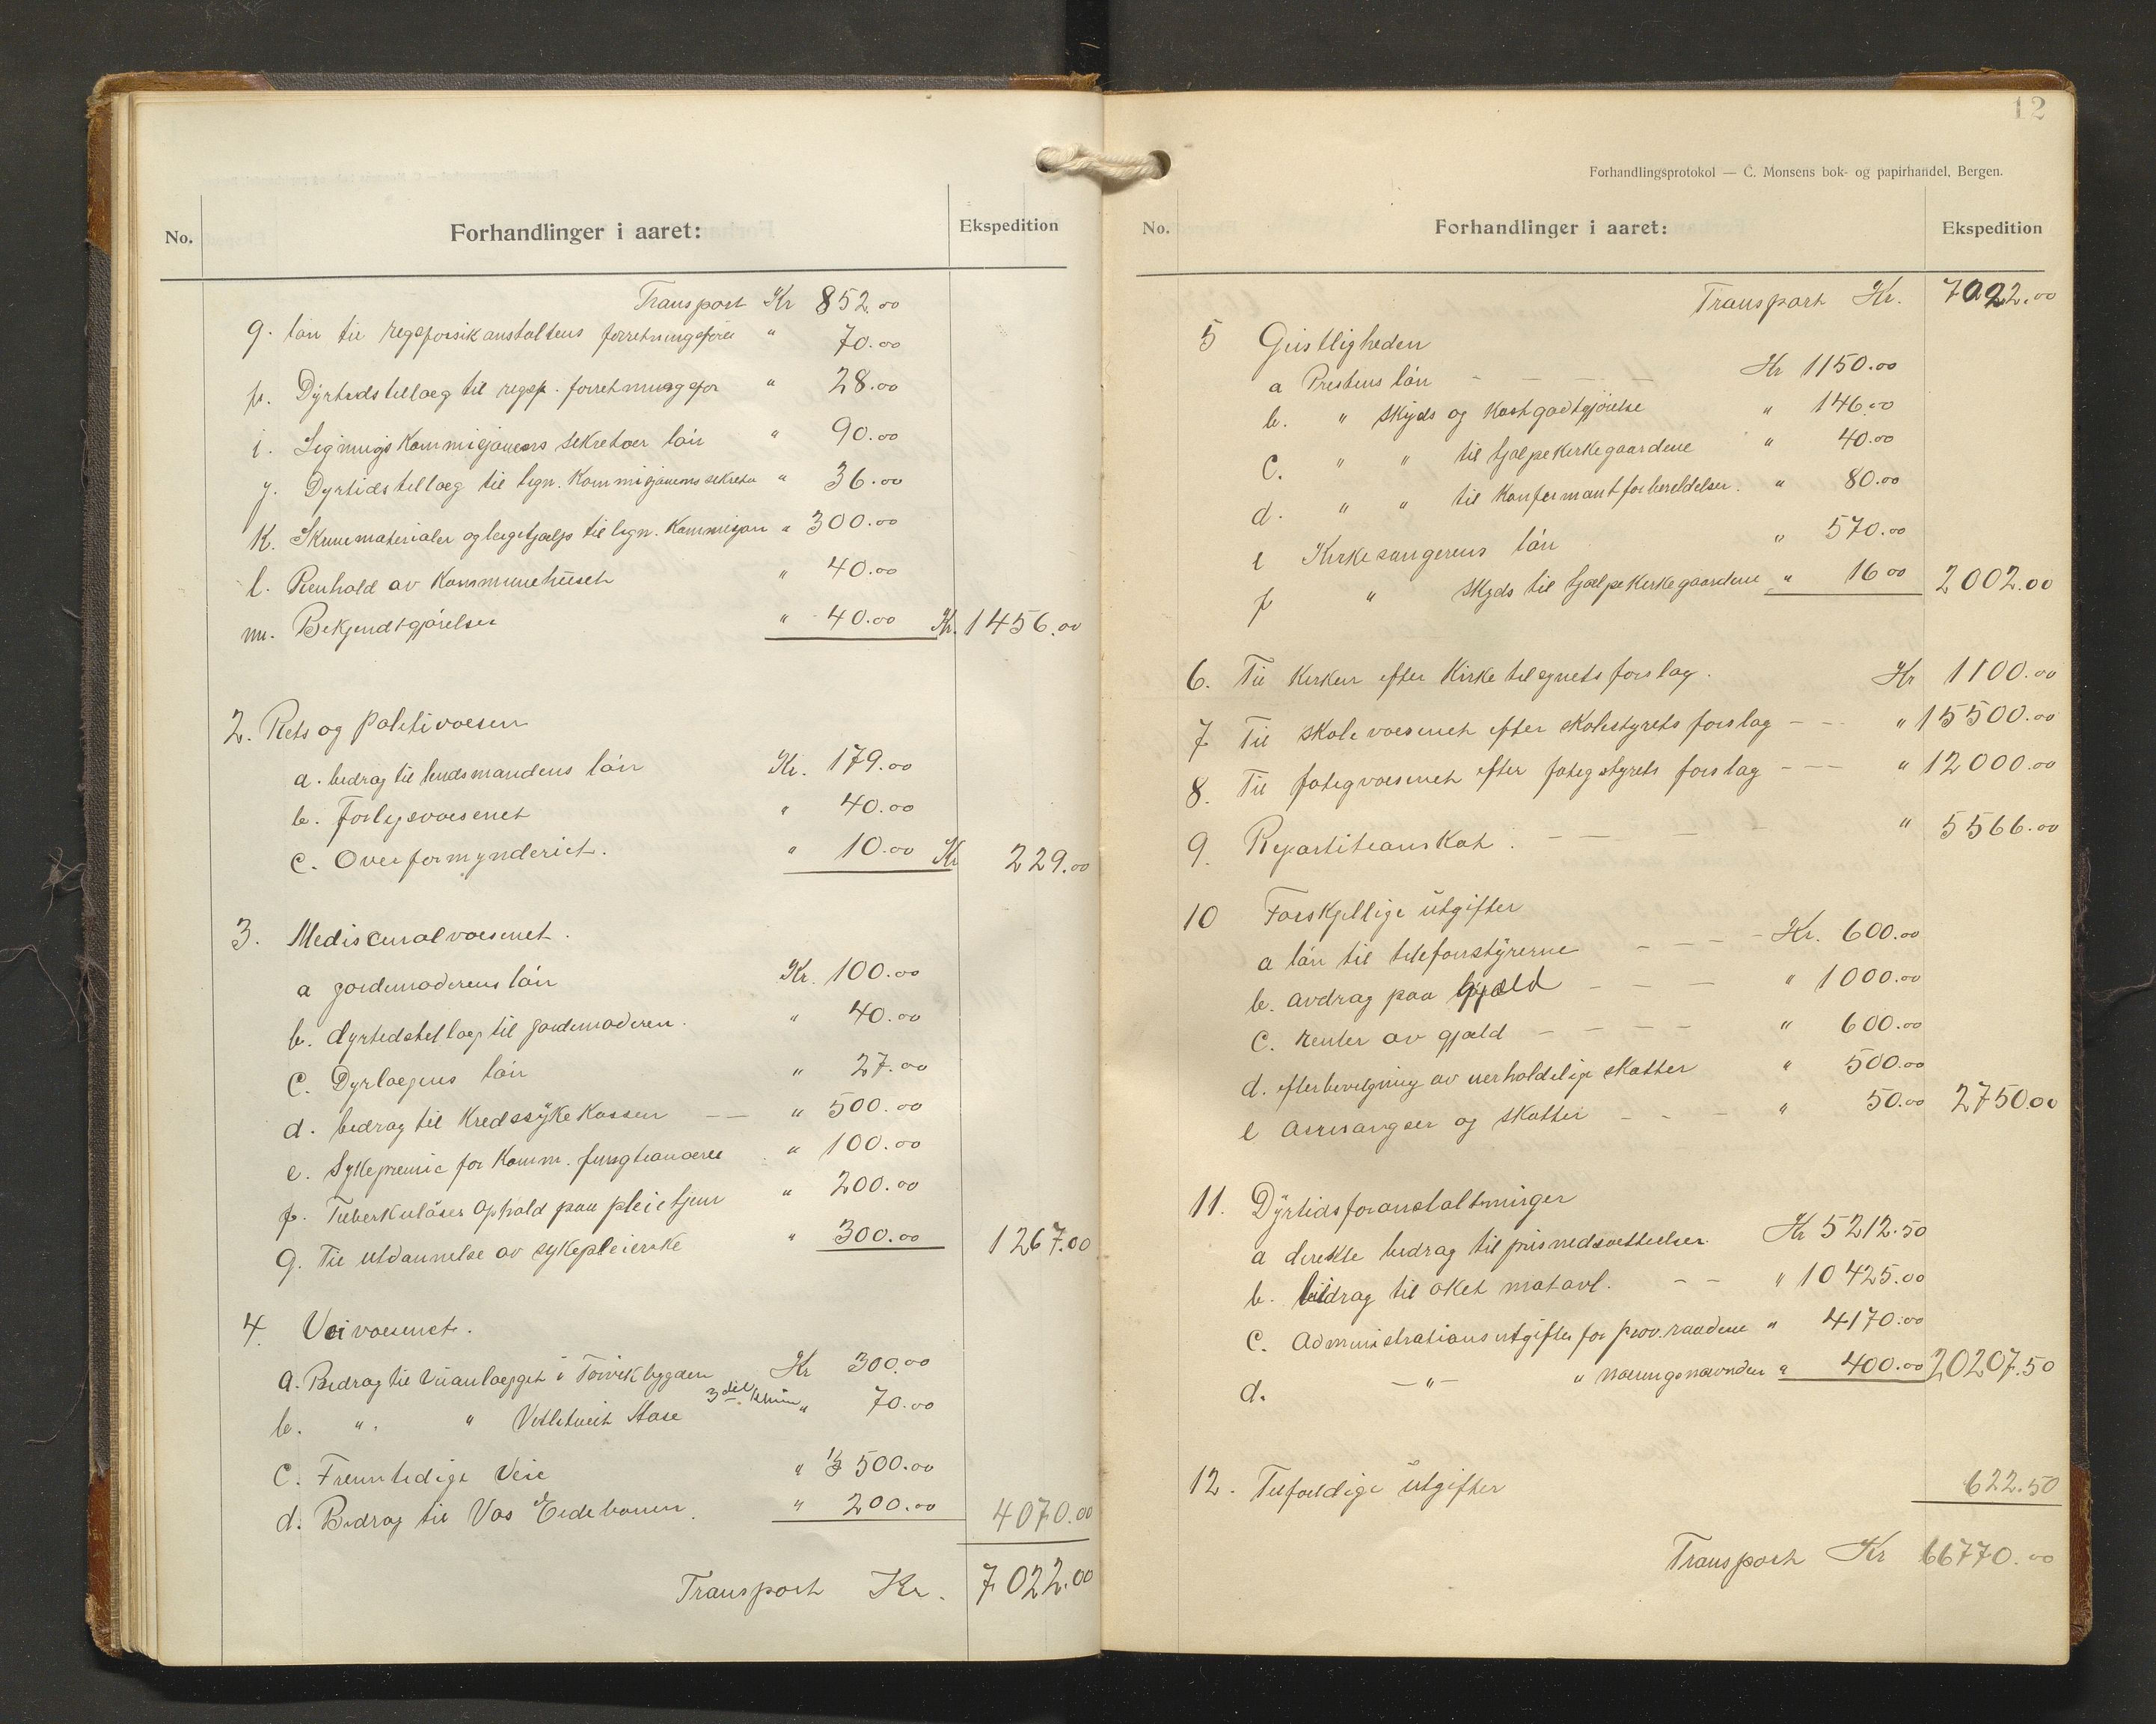 No.
Forhandlinger i aaret:
Ekspedition
Transport Kr 852.00
g. løn til regsforsikanstaltens forretningsfører " 70.00
h. Dyrtidstillæg til regsf. forretningsfør " 28.00
i. Ligningskommisjonens sekretær løn " 90.00
j. Dyrtidstillæg til lign. kommisjonens sekretær " 36.00
k. Skrivematerialer og leigehjælp til lign. kommisjon " 300.00
l. Renhold av Kommunehuset " 40.00
m. Bekjendtgjørelser " 40.00 Kr. 1456.00
2. Rets og Politivæsen
a. bidrag til lensmandens løn Kr. 179.00
b. Forligsvæsenet " 40.00
c. Overformynderiet. " 10.00 Kr 229.00
3. Medisinalvæsenet.
a jordemoderens løn Kr. 100.00
b. dyrtidstillæg til jordemoderen. " 40.00
c. Dyrlægens løn " 27.00
d. bidrag til Kredssykekassen — — " 500.00
e. Sykepremie for komm. funktionærer " 100.00
f. Tuberkuløses ophold paa pleiehjem " 200.00
g. Til utdannelse av sykepleierske " 300.00 1267.00
4. Veivæsenet.
a. Bidrag til Veianlægget i Tørvikbygden Kr 300.00
b. " " Vetletveit Aase 3die termin " 70.00
c. Fremtidige Veie " 3500.00
d. Bidrag til Vos Eidebanen. " 200.00 4070.00
Transport Kr. 7022.00
12
Forhandlingsprotokol — C. Monsens bok- og papirhandel, Bergen.
No.
Forhandlinger i aaret:
Ekspedition
Transport Kr. 7022.00
5 Geistligheden
a Prestens løn - - - - Kr 1150.00
b. " skyds og kostgodtgjørelse " 146.00
c. " " til hjælpekirkegaardene " 40.00
d. " " til konfirmantforberedelser. " 80.00
e Kirkesangerens løn " 570.00
f " skyds til hjælpekirkegaardene " 16 00 2002.00
6. Til kirken efter Kirketilsynets forslag. Kr 1100.00
7 Til skolevæsenet efter skolestyrets forslag - - - " 15500.00
8. Til fatigvæsenet efter fatigstyrets forslag - - - " 12000.00
9. Repartitionskat. - - - - " 5566.00
10 Forskjellige utgifter
a løn til telefonstyrerne - - - - Kr. 600.00
b. avdrag paa Gjæld - - - " 1000.00
c. renter av gjæld - - - - " 600.00
d. efterbevilgning av uerholdelige skatter " 500.00
e avsvangser og skatter - - - " 50.00 2750.00
11. Dyrtidsforanstaltninger
a direkte bidrag til prisnedsættelser Kr 5212.50
b. bidrag til øket matavl. - - " 10425.00
c. Administrationsutgifter for prov. raadene " 4170.00
d. —"— " næringsnævnden " 400.00 20207.50
12. Tilfældige utgifter 622.50
Transport Kr 66770.00